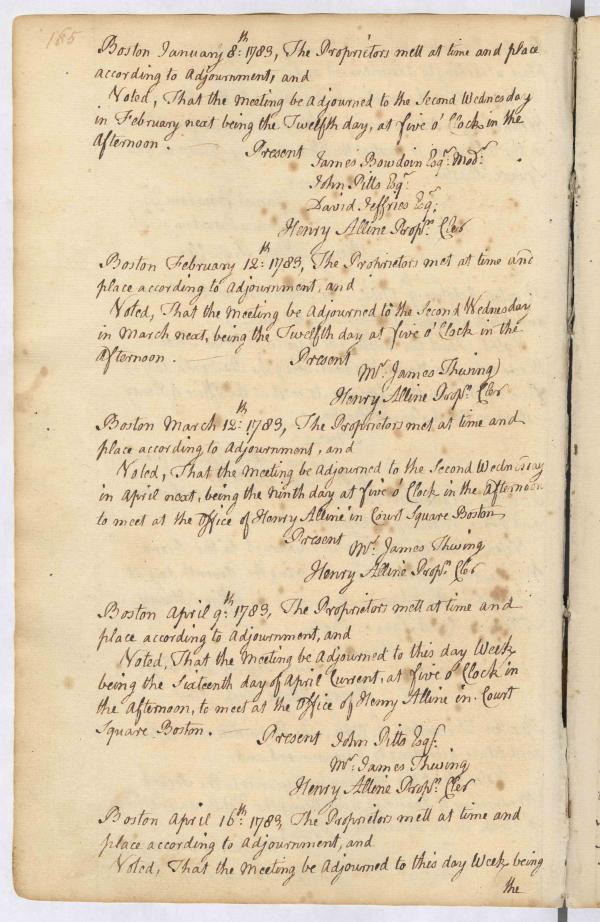 165
Boston January 8th: 1783, The Proprietors mett at time and place
according to Adjournment, and
Noted, That the Meeting be Adjourned to the Second Wednesday
in February next being the Twelfth day, at five o' Clock in the
Afternoon. Present
James Bowdoin Esqr. Modr.
John Pitts Esqr.
David Jeffries Esqr:
Henry Alline Proprs. Cler
Boston February 12th: 1783, The Proprietors met at time and
place according to Adjournment, and
Noted, That the Meeting be Adjourned to the Second Wednesday
in March next, being the Twelfth day at five o' Clock in the
Afternoon. Present
Mr. James Thwing
Henry Alline Proprs. Cler
Boston March 12th: 1783, The Proprietors met at time and
place according to Adjournment, and
Noted, That the Meeting be Adjourned to the Second Wednesday
in April next, being the Ninth day at five o' Clock in the Afternoon
to meet at the Office of Henry Alline in Court Square Boston
Present
Mr. James Thwing
Henry Alline Proprs. Cler
Boston April 9th: 1783, The Proprietors mett at time and
place according to Adjournment, and
Noted, That the Meeting be Adjourned to this day Week
being the Sixteenth day of April Current, at five o' Clock in
the Afternoon, to meet at the Office of Henry Alline in Court
Square Boston.
Present John Pitts Esqr.
Mr. James Thwing
Henry Alline Proprs. Cler
Boston April 16th: 1783, The Proprietors mett at time and
place according to Adjournment, and
Noted, That the Meeting be Adjourned to this day Week being
the